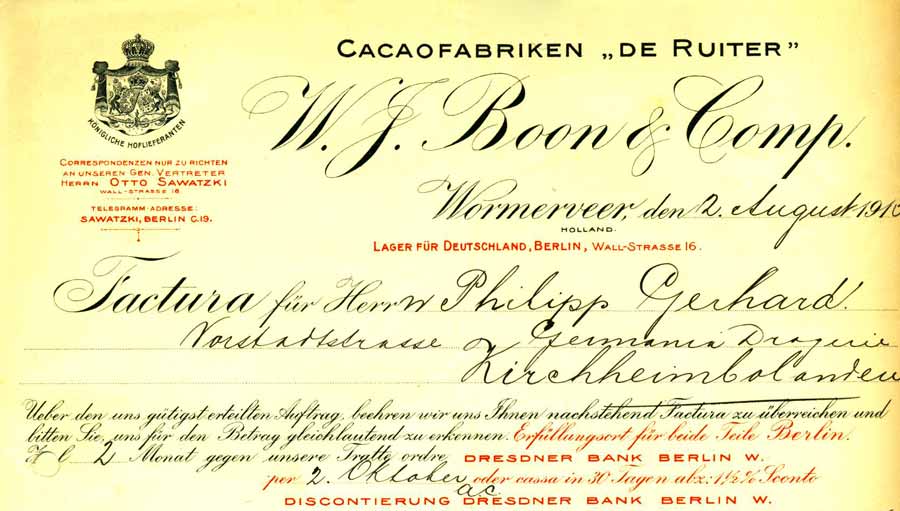 CACAOFABRIKEN „DE RUITER”
W. J. Boon & Comp.
KÖNIGLICHE HOFLIEFERANTEN
CORRESPONDENZEN NUR ZU RICHTEN
AN UNSEREN GEN. VERTRETER
HERRN OTTO SAWATZKI
WALL-STRASSE 16
TELEGRAMM-ADRESSE:
SAWATZKI, BERLIN C.19.
Wormerveer, den 2. August 1910
HOLLAND.
LAGER FÜR DEUTSCHLAND, BERLIN, WALL-STRASSE 16.
Factura für Herrn Philipp Gerhard.
Vorstadtstrasse Germania Drogerie
Kirchheimbolanden
Ueber den uns gütigst erteilten Auftrag, beehren wir uns Ihnen nachstehend Factura zu überreichen und
bitten Sie, uns für den Betrag gleichlautend zu erkennen. Erfüllungsort für beide Teile Berlin.
2 Monat gegen unsere Tratte ordre DRESDNER BANK BERLIN W.
per 2. Oktober oder cassa in 30 Tagen abz: 1½% Sconto
ac
DISCONTIERUNG DRESDNER BANK BERLIN W.